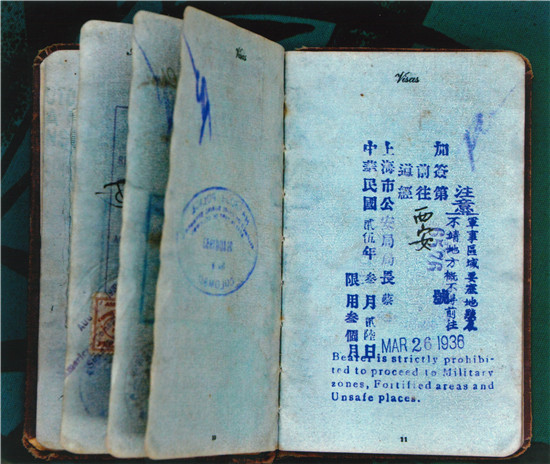 Visas
注意
軍事區域要塞地
不靖地方概不得前往
加簽第 號
前往 西安
道經
上海市公安局局長蔡
中華民國貳伍年叁月貳陸日
限用叁個月
MAR 26 1936
Bearer is strictly prohibi-
ted to proceed to Military
zones, Fortified areas and
Unsafe places.
11